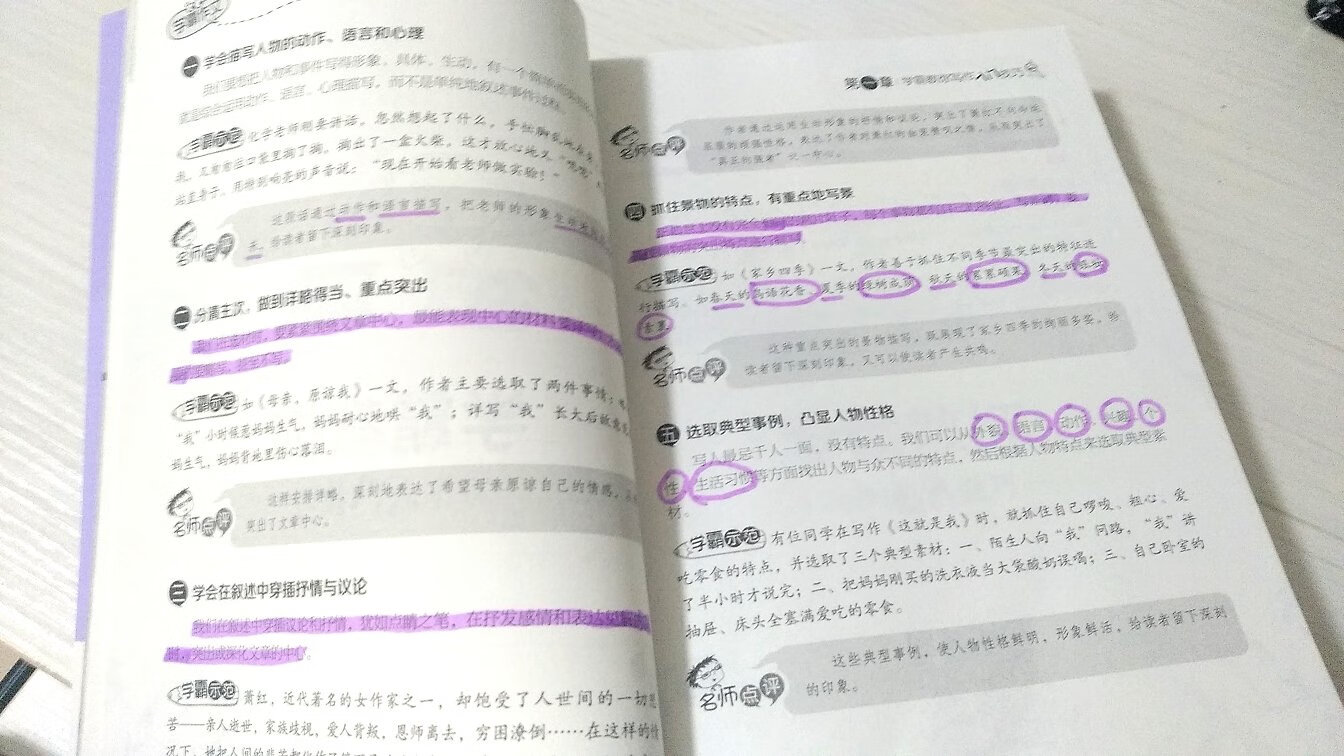 学霸作文
一 学会描写人物的动作、语言和心理
我们要想把人物和事件写得形象、具体、生动,有一个简单
就是综合运用动作、语言、心理描写,而不是单纯地叙述事件过程。
学霸示范 化学老师刚要讲话,忽然想起了什么,
摸,又在右边口袋里摸了摸,摸出了一盒火柴,这才放心地又
站直身子,用特别响亮的声音说:“现在开始看老师做实验!”
名师点评 这段话通过动作和语言描写,把老师的形象生动地
来,给读者留下深刻印象。
二 分清主次,做到详略得当、重点突出
我们在选材时,要紧紧围绕文章中心,最能表现中心的材料要
学霸示范 如《母亲,原谅我》一文,作者主要选取了两件事情:
“我”小时候惹妈妈生气,妈妈耐心地哄“我”;详写“我”长大后故意
妈生气,妈妈背地里伤心落泪。
名师点评 这样安排详略,深刻地表达了希望母亲原谅自己的情感,
突出了文章中心。
三 学会在叙述中穿插抒情与议论
我们在叙述中穿插议论和抒情,犹如点睛之笔,在抒发感情和表达
时,突出或深化文章的中心。
学霸示范 萧红,近代著名的女作家之一,却饱受了人世间的一切
苦——亲人逝世,家族歧视,爱人背叛,恩师离去,穷困潦倒……在这样的情
况下,她把人间的
第一章 学霸教你写作
名师点评
“真正的强者”这一中心。
四 抓住景物的特点,有重点地写景
学霸示范 如《家乡四季》一文,作者善于抓住不同季节最突出的特征进
行描写。如春天的鸟语花香、夏季的绿树成荫、秋天的累累硕果、冬天的
名师点评 这种重点突出的景物描写,既展现了家乡四季的绚丽多姿,给
读者留下深刻印象,又可以使读者产生共鸣。
五 选取典型事例,凸显人物性格
写人最忌千人一面,没有特点。我们可以从外貌、语言、动作、兴趣、个
性、生活习惯等方面找出人物与众不同的特点,然后根据人物特点来选取典型素
材。
学霸示范 有位同学在写作《这就是我》时,就抓住自己啰唆、粗心、爱
吃零食的特点,并选取了三个典型素材:一、陌生人向“我”问路,“我”讲
了半小时才说完;二、把妈妈刚买的洗衣液当大袋酸奶误喝;三、自己卧室的
抽屉、床头全塞满爱吃的零食。
名师点评 这些典型事例,使人物性格鲜明,形象鲜活,给读者留下深刻
的印象。